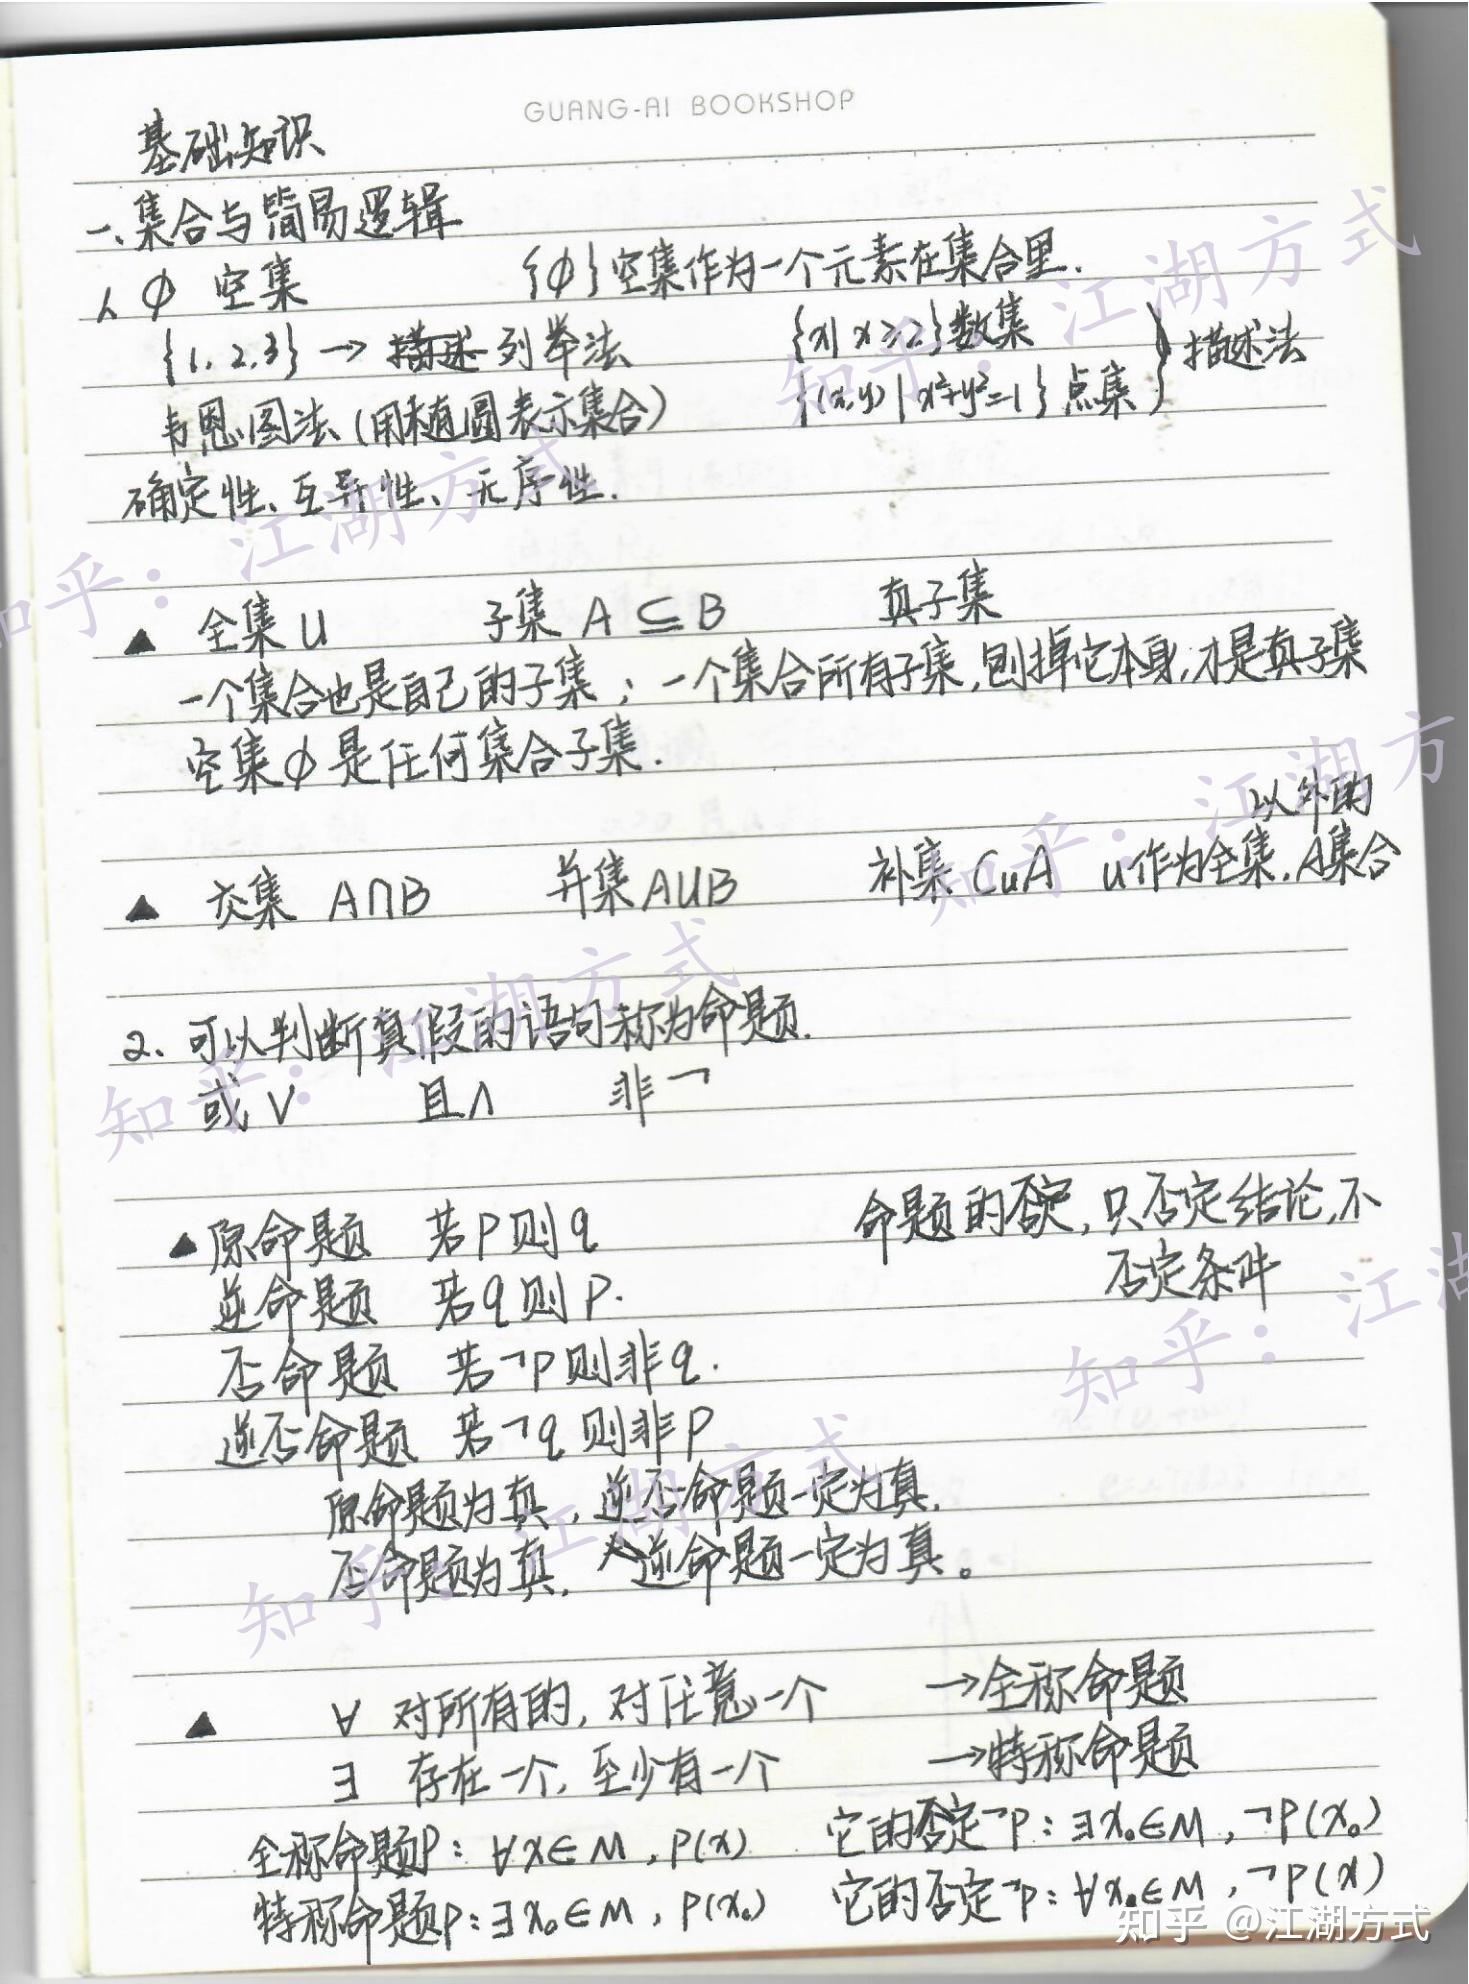 GUANG-AI BOOKSHOP
基础知识
一、集合与简易逻辑
1、∅ 空集 {∅}空集作为一个元素在集合里.
{1,2,3}→描述列举法 {x|x≥2}数集
韦恩图法(用椭圆表示集合) {(x,y)|x²+y²=1}点集 }描述法
确定性、互异性、无序性.
▲ 全集U 子集A⊆B 真子集
一个集合也是自己的子集;一个集合所有子集,刨掉它本身,才是真子集
空集∅是任何集合子集.
以外的
▲ 交集 A∩B 并集A∪B 补集 CuA u作为全集,A集合
2、可以判断真假的语句称为命题.
或∨ 且∧ 非¬
▲原命题 若p则q 命题的否定,只否定结论,不
逆命题 若q则p. 否定条件
否命题 若¬p则非q.
逆否命题 若¬q则非p
原命题为真,逆否命题一定为真.
否命题为真,逆命题一定为真。
▲ ∀ 对所有的,对任意一个 →全称命题
∃ 存在一个,至少有一个 →特称命题
全称命题P:∀x∈M,P(x) 它的否定¬P:∃x₀∈M,¬P(x₀)
特称命题p:∃x₀∈M,P(x₀) 它的否定¬p:∀x₀∈M,¬P(x)
知乎:江湖方式
知乎 @江湖方式